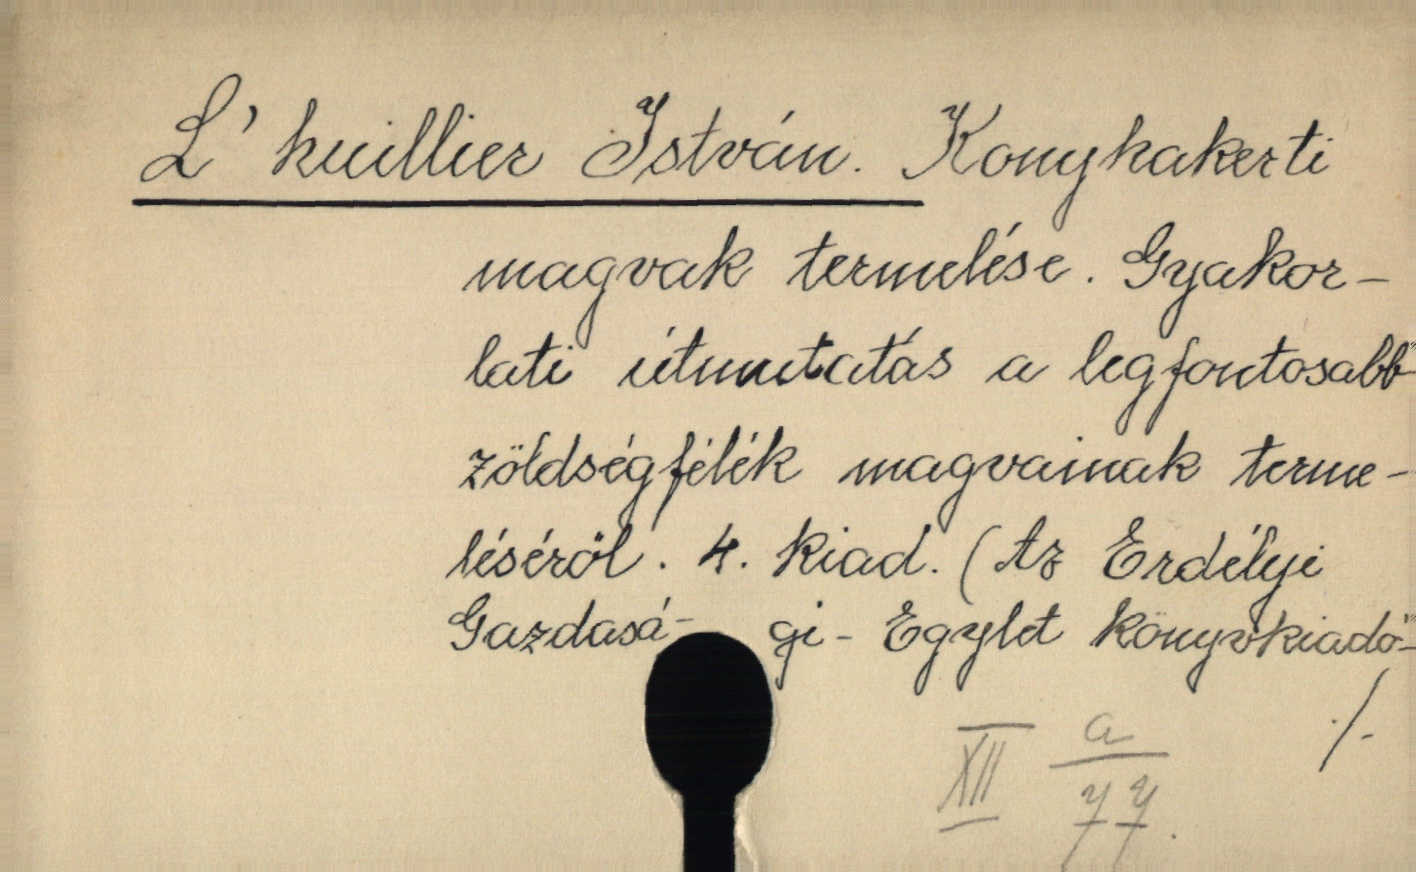 L'huillier István. Konyhakerti
magvak termelése. Gyakor-
lati útmutatás a legfontosabb
zöldségfélék magvainak terme-
léséről. 4. kiad. (Az Erdélyi
Gazdasá- gi- Egylet könyvkiadó-
./-
XII a
77.